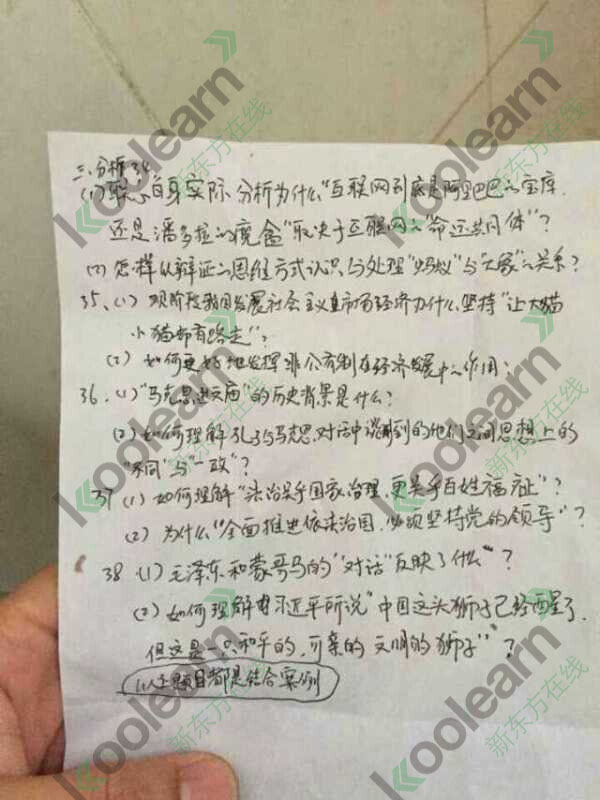 三.分析34
(1)联系自身实际 分析为什么"互联网到底是阿里巴巴的宝库
还是潘多拉的魔盒"取决于互联网的"命运共同体"?
(2)怎样从辩证的思维方式认识与处理"蚂蚁"与"大象"的关系?
35、(1)现阶段我国发展社会主义市场经济为什么坚持"让大猫
小猫都有路走"?
(2)如何更好地发挥非公有制在经济发展中的作用?
36.(1)"马克思进文庙"的历史背景是什么?
(2)如何理解孔子与马克思对话中谈到的他们之间思想上的
"不同"与"一致"?
37(1)如何理解"法治关乎国家治理,更关乎百姓福祉"?
(2)为什么"全面推进依法治国,必须坚持党的领导"?
38(1)毛泽东和蒙哥马的"对话"反映了什么"?
(2)如何理解习近平所说"中国这头狮子已经醒了,
但这是一只和平的,可亲的 文明的狮子"?
以上题目都是结合案例
koolearn
新东方在线
koolearn
新东方在线
koolearn
新东方在线
koolearn
新东方在线
koolearn
新东方在线
koolearn
新东方在线